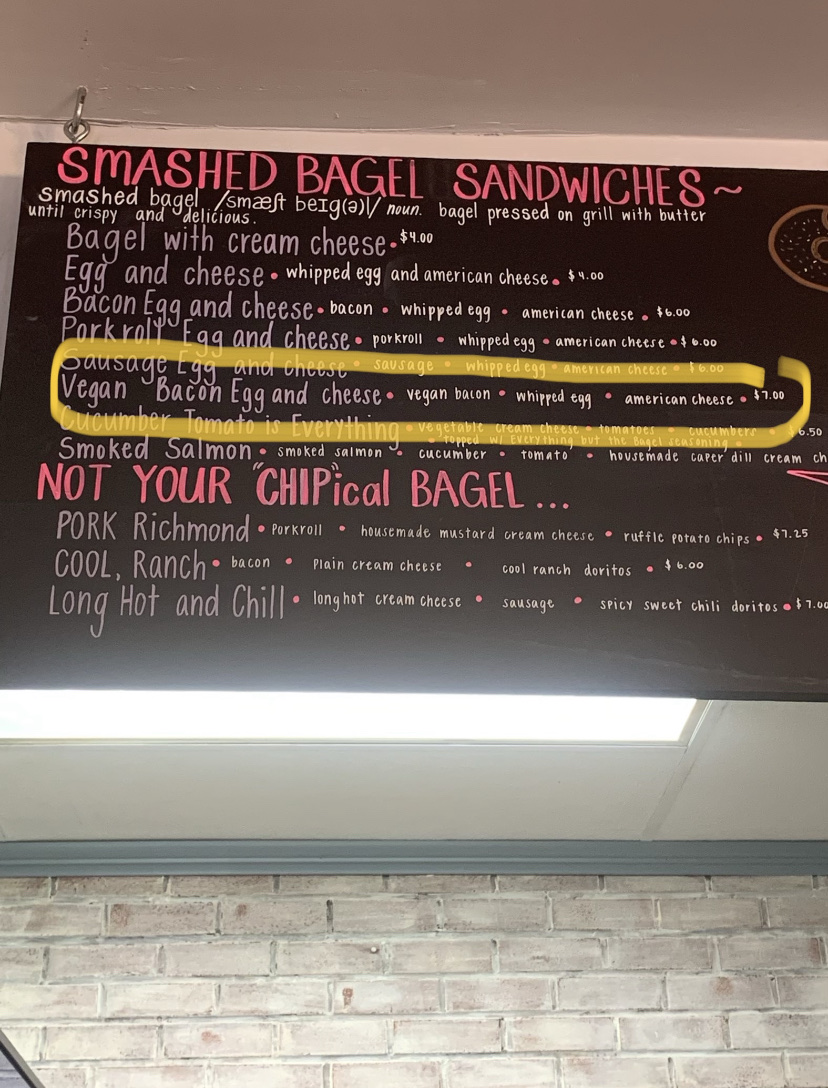 SMASHED BAGEL SANDWICHES~
smashed bagel /smæʃt beɪg(ə)l/ noun. bagel pressed on grill with butter
until crispy and delicious.
Bagel with cream cheese • $4.00
Egg and cheese • whipped egg and american cheese • $4.00
Bacon Egg and cheese • bacon • whipped egg • american cheese • $6.00
Porkroll Egg and cheese • porkroll • whipped egg • american cheese • $6.00
Sausage Egg and cheese • sausage • whipped egg • american cheese • $6.00
Vegan Bacon Egg and cheese • vegan bacon • whipped egg • american cheese • $7.00
Cucumber Tomato is Everything • vegetable cream cheese • tomatoes • cucumbers • 6.50
• Topped w/ Everything but the Bagel seasoning •
Smoked Salmon • smoked salmon • cucumber • tomato • housemade caper dill cream ch
NOT YOUR "CHIP"ical BAGEL ...
PORK Richmond • Porkroll • housemade mustard cream cheese • ruffle potato chips • $7.25
COOL, Ranch • bacon • Plain cream cheese • cool ranch doritos • $6.00
Long Hot and Chill • longhot cream cheese • sausage • spicy sweet chili doritos • $7.00